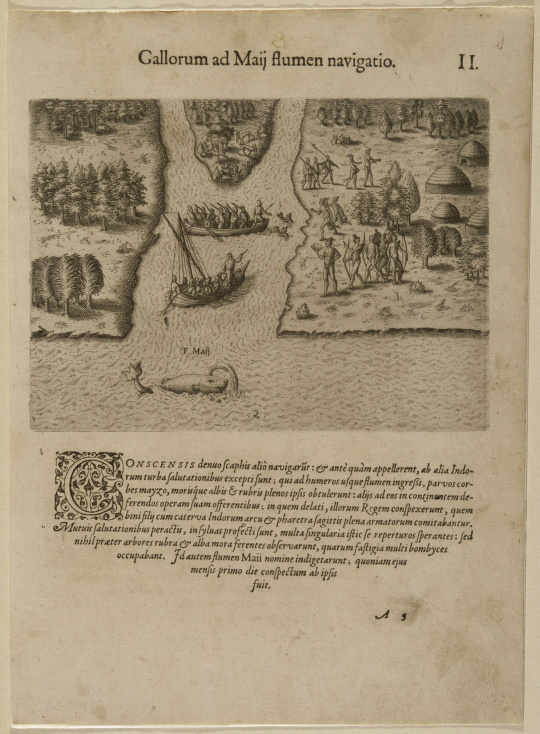 Gallorum ad Maij flumen navigatio.
II.
F. Maij
2
CONSCENSIS denuo scaphis aliò navigarũt: & antè quàm appellerent, ab alia Indo-
rum turba salutationibus excepti sunt; qui ad humeros usque flumen ingressi, parvos cor-
bes mayzo, morisque albis & rubris plenos ipsis obtulerunt: alijs ad eos in continentem de-
ferendos operam suam offerentibus: in quem delati, illorum Regem conspexerunt, quem
bini filij cum caterva Indorum arcu & pharetra sagittis plena armatorum comitabantur.
Mutuis salutationibus peractis, in sylvas profecti sunt, multa singularia istic se reperturos sperantes: sed
nihil præter arbores rubra & alba mora ferentes observarunt, quarum fastigia multi bombyces
occupabant. Id autem flumen Maii nomine indigetarunt; quoniam ejus
mensis primo die conspectum ab ipsis
fuit.
A 3